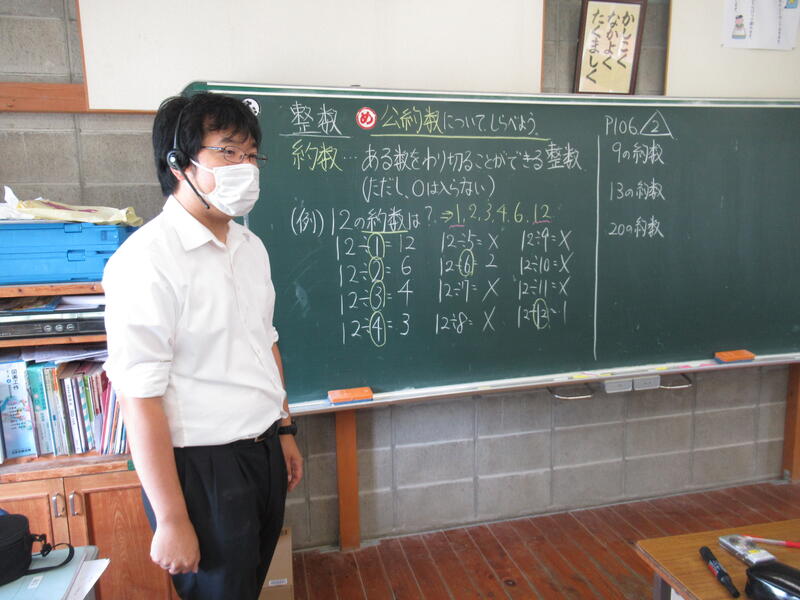 かしこく
なかよく
たくましく
整数 め 公約数について、しらべよう。
約数…ある数をわり切ることができる整数
(ただし、0は入らない)
(例)12の約数は?⇒1,2,3,4,6,12
12÷1=12
12÷2=6
12÷3=4
12÷4=3
12÷5=X
12÷6=2
12÷7=X
12÷8=X
12÷9=X
12÷10=X
12÷11=X
12÷12=1
P106 2
9の約数
13の約数
20の約数